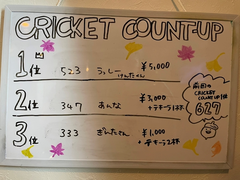 CRICKET COUNT-UP
1位 523 らっしー ¥5,000
けんたさん
2位 347 あんな ¥3,000
+テキーラ1杯
3位 333 ¥1,000
+テキーラ2杯
前回の
CRICKET
COUNT UP 1位
627